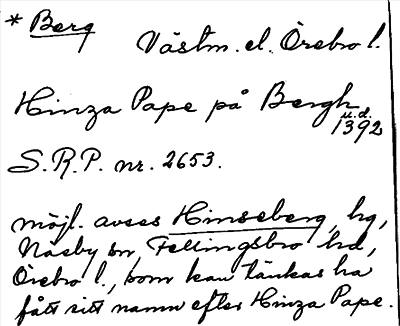 * Berg
Västm. el. Örebro l.
Hinza Pape på Bergh
u.d.
1392
S.R.P. nr. 2653.
möjl. avses Hinseberg, hg,
Näsby sn, Fellingsbro hd,
Örebro l., som kan tänkas ha
fått sitt namn efter Hinza Pape.